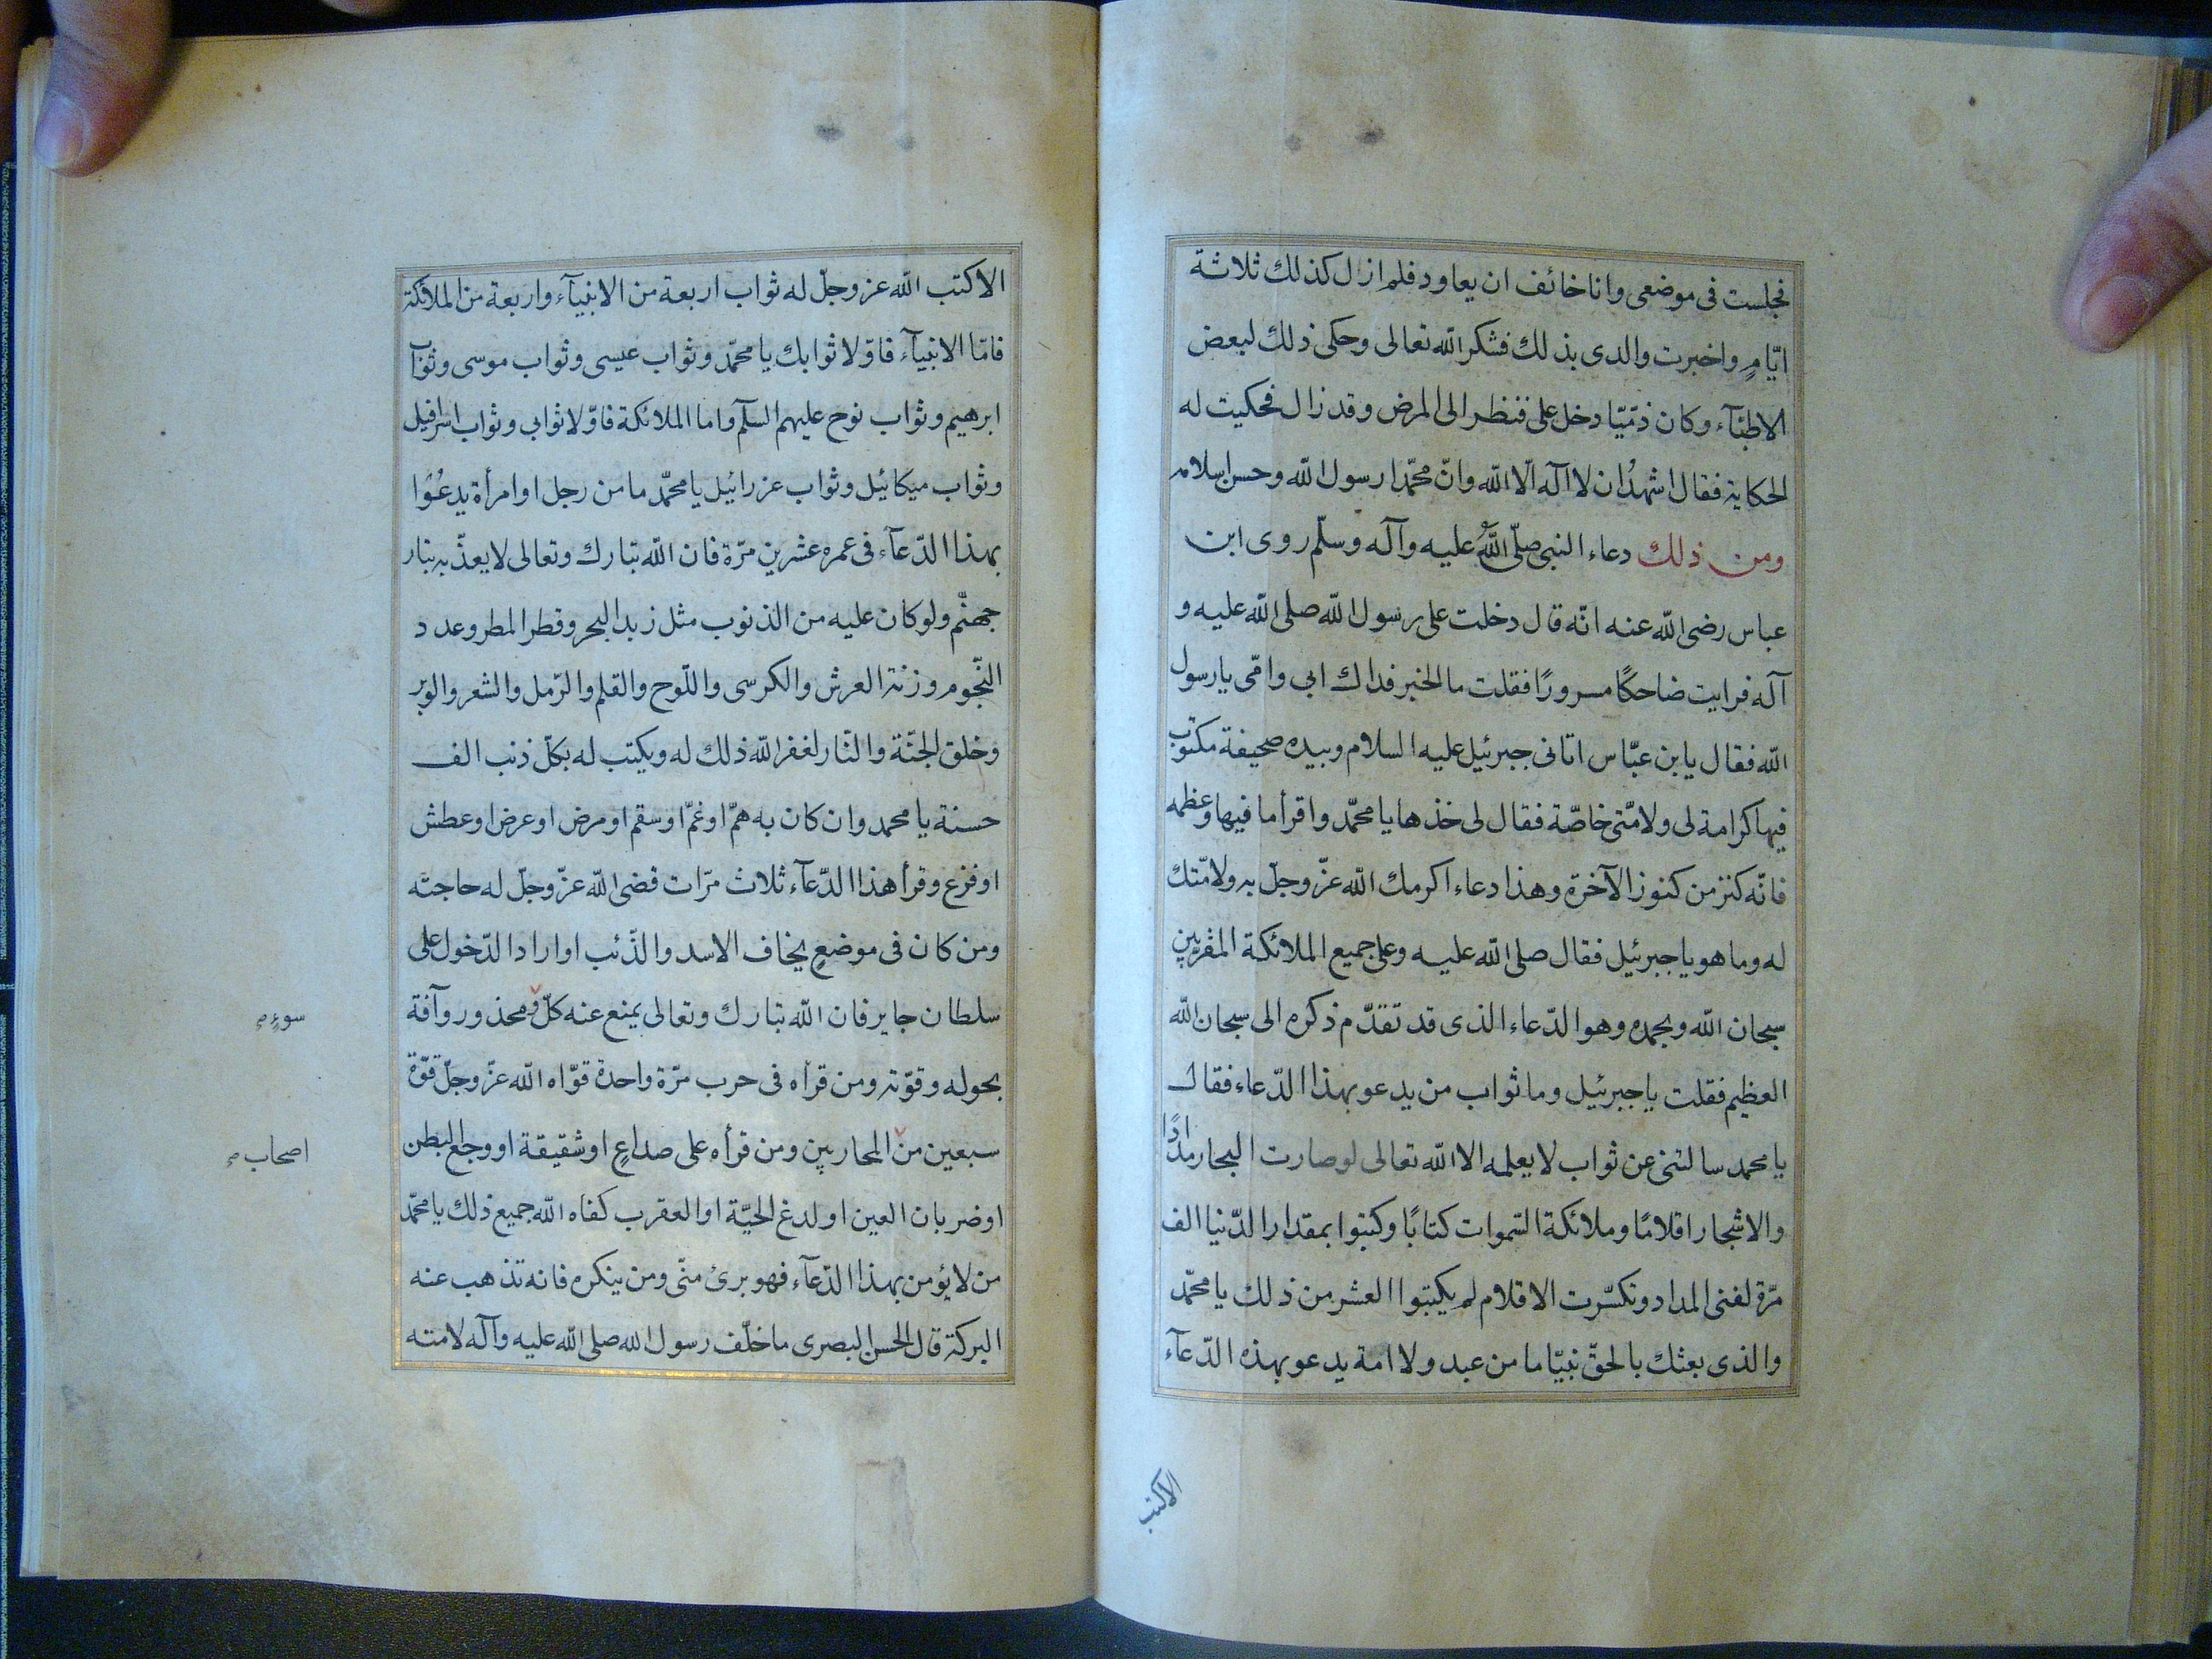 فجلست فى موضعى وانا خائف ان يعاود فلم ازل كذلك ثلاثة
ايّامٍ واخبرت والدى بذلك فشكر الله تعالى وحكى ذلك لبعض
الاطبّآء وكان ذمّيّا دخل على فنظر الى المرض وقد زال فحكيت له
الحكاية فقال اشهدُ ان لا اله الّا الله وانّ محمّدا رسول الله وحسن اسلامه
ومن ذلك دعاء النبى صلّى اللهُ عليه وآله وسلّم روى ابن
عباس رضى الله عنه انّه قال دخلت على رسول الله صلى الله عليه و
آله فرايت ضاحكًا مسرورًا فقلت ما الخبر فداك ابى وامّى يا رسول
الله فقال يا بن عبّاس اتانى جبرئيل عليه السلام وبيده صحيفة مكتوب
فيها كرامة لى ولامّتى خاصّة فقال لى خذها يا محمّد واقرأ ما فيها وعظمه
فانّه كنز من كنوز الآخرة وهذا دعاء اكرمك الله عزّ وجلّ به ولامّتك
له وما هو يا جبرئيل فقال صلى الله عليه وعلى جميع الملائكة المقربين
سبحان الله وبحمده وهو الدّعاء الذى قد تقدّم ذكره الى سبحان الله
العظيم فقلت يا جبرئيل وما ثواب من يدعو بهذا الدّعاء فقال
يا محمد سالتنى عن ثواب لا يعلمه الا الله تعالى لو صارت البحار مدادًا
والاشجار اقلامًا وملائكة السّموات كتابًا وكتبوا بمقدار الدّنيا الف
مرّة لفنى المداد وتكسّرت الاقلام لم يكتبوا العشر من ذلك يا محمّد
والذى بعثك بالحقّ نبيّا ما من عبد ولا امة يدعو بهذه الدّعآء
الاكتب
الاكتب الله عز وجلّ له ثواب اربعة من الانبيآء واربعة من الملائكة
فامّا الانبيآء فاوّلا ثوابك يا محمّد وثواب عيسى وثواب موسى وثواب
ابرهيم وثواب نوح عليهم السلآم واما الملائكة فاوّلا ثوابي وثواب اسرافيل
وثواب ميكائيل وثواب عزرائيل يا محمّد ما من رجل او امرأة يدعُوا
بهذا الدّعآء فى عمره عشرين مرّة فان الله تبارك وتعالى لا يعذّبه بنار
جهنّم ولو كان عليه من الذنوب مثل زبد البحر وقطر المطر وعدد
النّجوم وزنة العرش والكرسى واللّوح والقلم والرّمل والشعر والوبر
وخلق الجنّة والنّار لغفر الله ذلك له ويكتب له بكلّ ذنب الف
حسنة يا محمد وان كان به همّ او غمّ او سقم او مرض او عرض او عطش
او فزع وقرأ هذا الدّعآء ثلاث مرّات قضى الله عزّ وجلّ له حاجته
ومن كان فى موضعٍ يخاف الاسد والذّئب او اراد الدّخول على
سلطان جاير فان الله تبارك وتعالى يمنع عنه كلّ ومحذور وآفة
سوءٍ
بحوله وقوّته ومن قرأه فى حرب مرّة واحدة قوّاه الله عزّ وجلّ قوّة
سبعين من المحاربين ومن قرأه على صداعٍ او شقيقة او وجع البطن
اصحاب
او ضربان العين او لدغ الحيّة او العقرب كفاه الله جميع ذلك يا محمّد
من لا يؤمن بهذا الدّعآء فهو برئ منّى ومن ينكره فانه تذهب عنه
البركة قال الحسن البصرى ما خلّف رسول الله صلى الله عليه وآله لامته